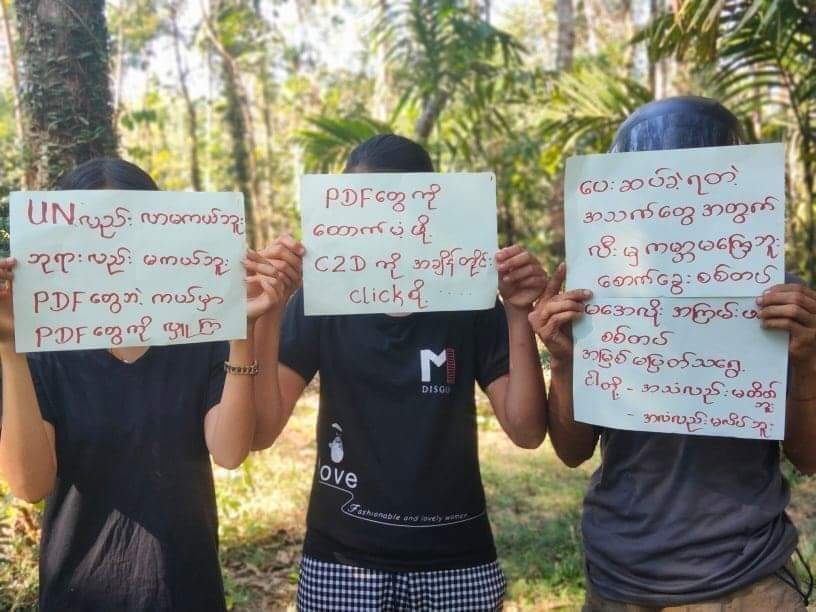 UN လည်း လာမကယ်ဘူး
ဘုရားလည်း မကယ်ဘူး
PDF တွေဘဲ ကယ်မှာ
PDF တွေကို လှူကြ
PDF တွေ ကို
ထောက်ပံ့ဖို့
C2D ကို အချိန်တိုင်း
click စို့ . . . .
ပေးဆပ်ခဲ့ရတဲ့
အသက်တွေအတွက်
လီး မှ ကမ္ဘာမကြေဘူး
စောက်ခွေးစစ်တပ်
မအေလိုး အကြမ်းဖက်
စစ်တပ်
အမြစ် မပြတ်သရွေ့
ငါတို့ - အသံလည်း မတိတ်ဘူး
- အလံလည်း မလှဲဘူး
M
DISGO
love
Fashionable and lovely women